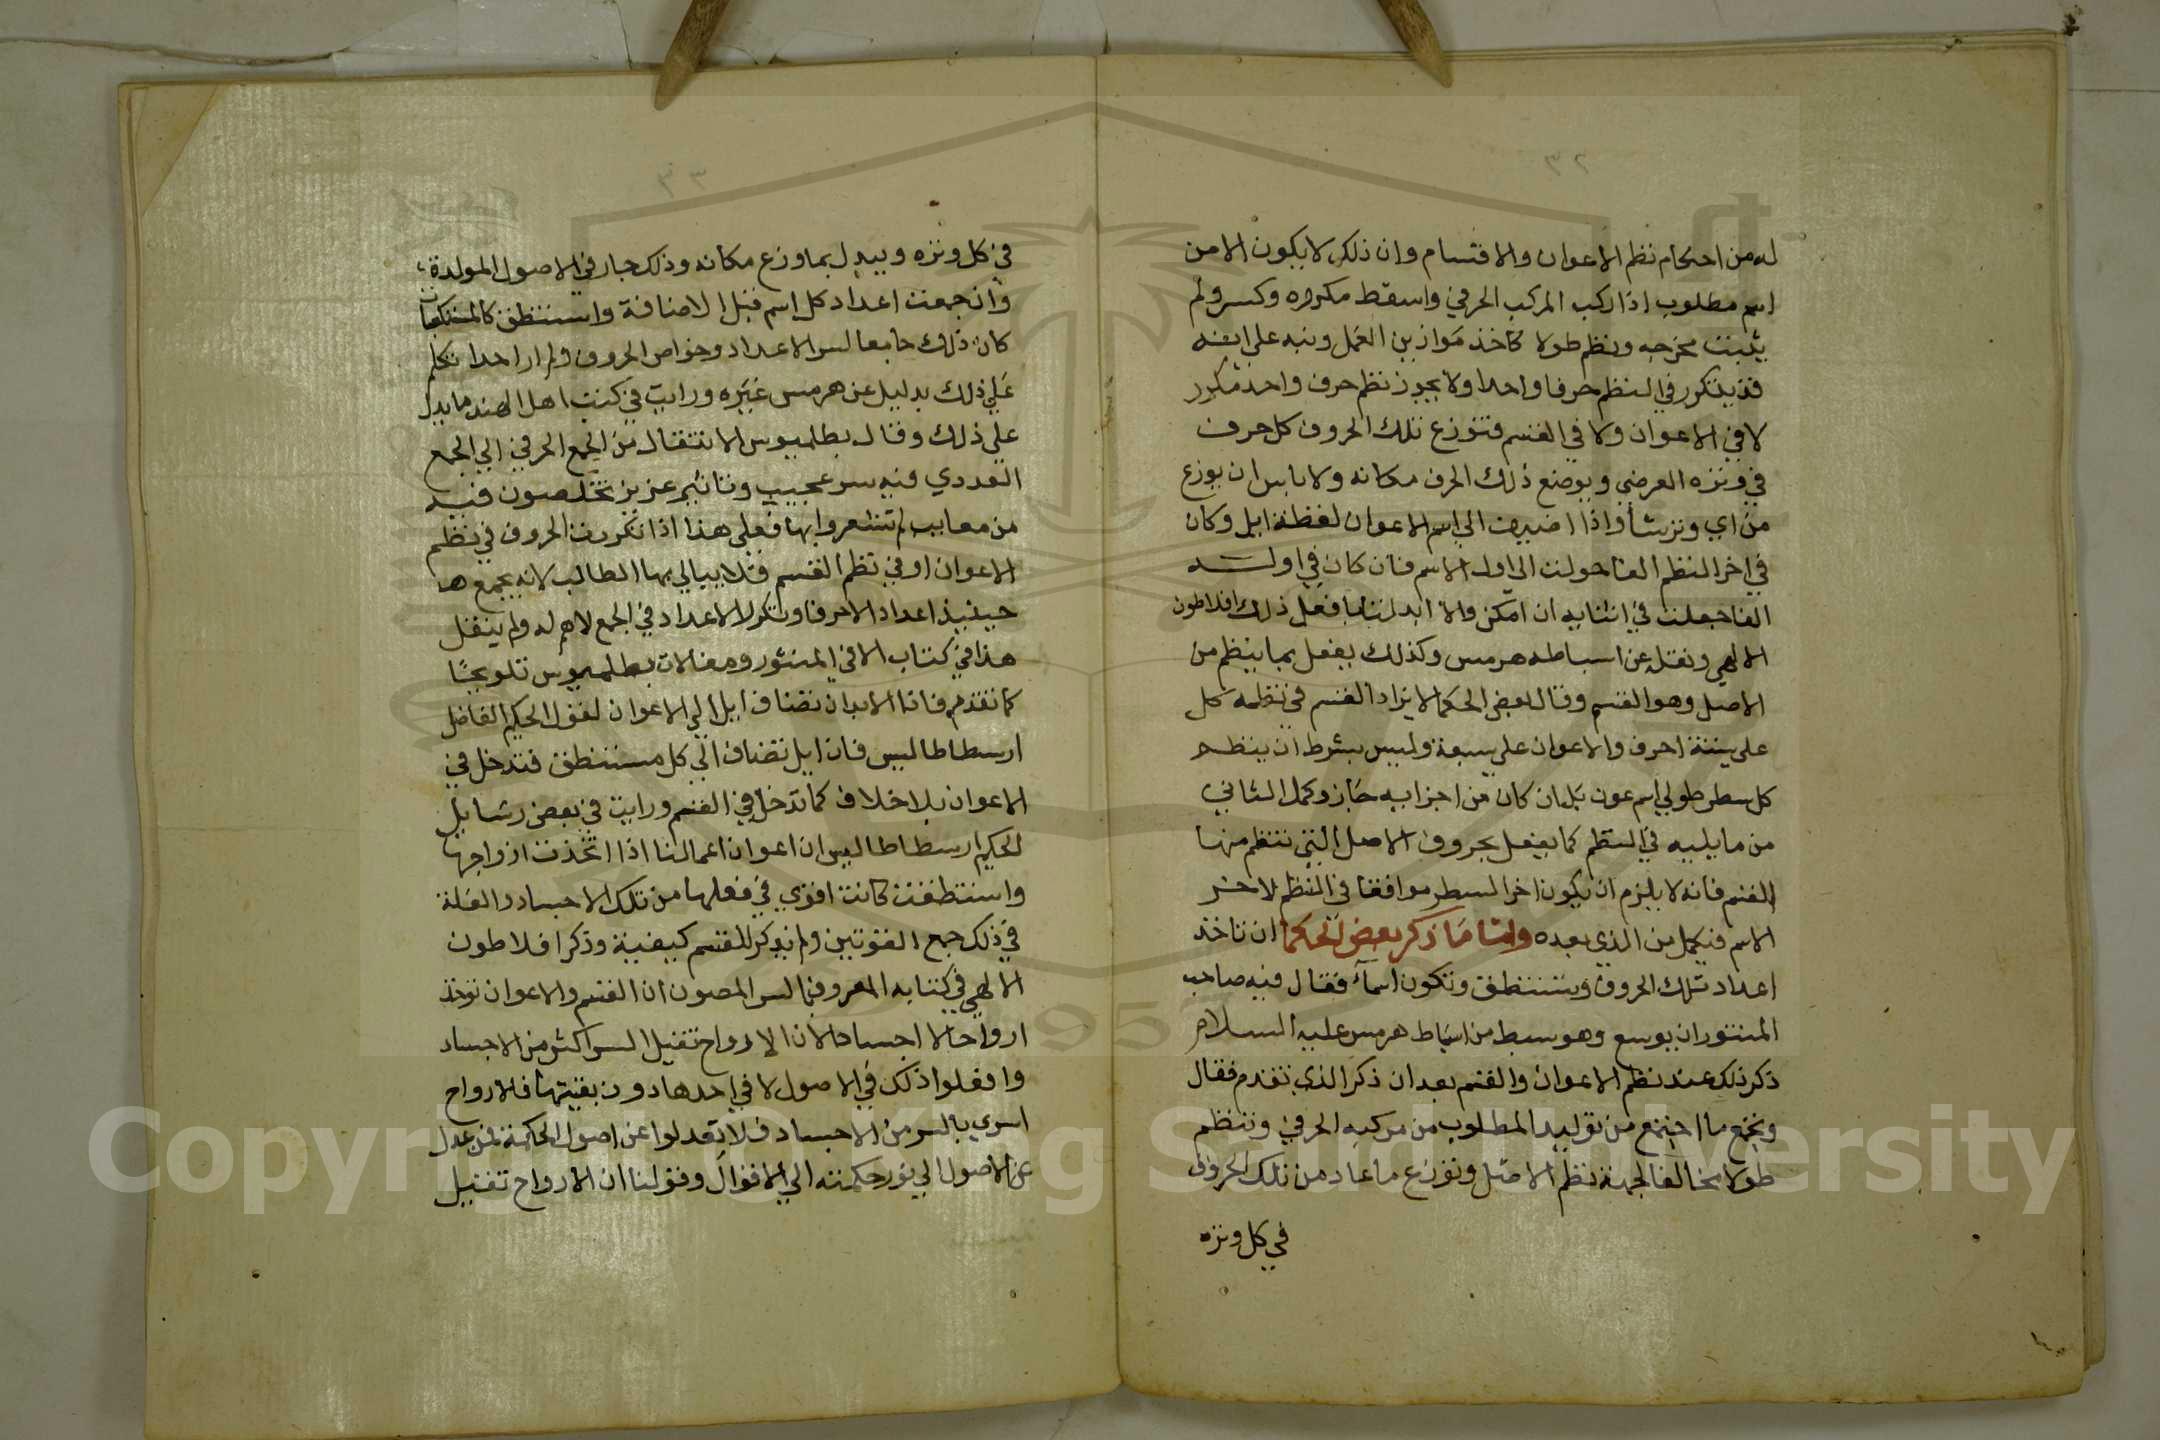 ٣٢
له من احكام نظم الاعوان والاقسام وان ذلك لا يكون الا من
اسم مطلوب اذا ركب المركب الحرفي واسقط مكرره وكسر ولم
يثبت مخرجه ونظم طولا كاخذ موازين العمل ونبه على انه
قد يتكرر في النظم حرفا واحدا ولا يجوز نظم حرف واحد مكرر
لا في الاعوان ولا في القسم فتوزع تلك الحروف كل حرف
في وتره العرضي ويوضع ذلك الحرف مكانه ولا باس ان يوزع
من اي وتر شا واذا اضيفت الي اسم الاعوان لفظة ايل وكان
في اخر النظم الفا حولت الى اول الاسم فان كان في اوله
الفا جعلت في اثنايه ان امكن والا ابدلناها فعل ذلك افلاطون
الالهي ونقله عن اسباطه هرمس وكذلك يفعل بما ينظم من
الاصل وهو القسم وقال بعض الحكما لا يزاد القسم في نظمه كل
على ستة احرف والاعوان على سبعة وليس بشرط ان ينظم
كل سطر طولي اسم عون بل ان كان من اجزايه جاز وكمل الثاني
من ما يليه في النظم كما يفعل بحروف الاصل التي تنتظم منها
القسم فانه لا يلزم ان يكون اخر السطر موافقا في النظم لاخر
الاسم فيكمل من الذي بعده وامّا ما ذكر بعض الحكما ان تاخذ
اعداد تلك الحروف وتستنطق وتكون اسمآء فقال فيه صاحب
المنثور ان يوسع وهو سبط من اسباط هرمس عليه السلام
ذكر ذلك عند نظم الاعوان والقسم بعد ان ذكر الذي تقدم فقال
ويجمع ما اجتمع من توليد المطلوب من مركبه الحرفي وتنظم
طولا مخالفا لجهة نظم الاصل وتوزع ما عاد من تلك الحروف
في كل وتره
٣٣
في كل وتره ويبدل بما وزع مكانه وذلك جار في الاصول المولدة
وان جمعت اعداد كل اسم قبل الاضافة واستنطق
كان ذلك جامعا لسر الاعداد وخواص الحروف ولم ار احدا تكلم
على ذلك بدليل عن هرمس غيره ورايت في كتب اهل الهند ما يدل
على ذلك وقال بطلميوس الانتقال من الجمع الحرفي الي الجمع
العددي فيه سر عجيب وتاثير عزيز تخلصون فيه
من معايب لم تشعروا بها فعلى هذا اذا تكررت الحروف في نظم
الاعوان او في نظم القسم فلا يبالي بها الطالب لانه يجمع ها
حينيذ اعداد الاحرف وتكرر الاعداد في الجمع لازم له ولم ينقل
هذا في كتاب الا في المنثور ومقالات بطلميوس تلويحًا
كما تقدم فاما الابدان تضاف ايل الي الاعوان لقول الحكيم الفاضل
ارسطاطاليس فان ايل تضاف الي كل مستنطق فتدخل في
الاعوان بلا خلاف كما تدخل في القسم ورايت في بعض رسايل
الحكيم ارسطاطاليس ان اعوان اعمالنا اذا اتخذت ازواجها
واستنطقت كانت اقوي في فعلها من تلك الاجساد والعلة
في ذلك جمع القوتين ولم يذكر للقسم كيفية وذكر افلاطون
الالهي في كتابه المعروف بالسر المصون ان القسم والاعوان توخذ
ارواحا لا اجسادا لان الارواح تقبل السر اكثر من الاجساد
وافعلوا ذلك في الاصول لا في احدها دون بقيتها فالارواح
اسري بالسر من الاجساد فلا تعدلوا عن اصول الحكمة فمن عدل
عن الاصول الي غير حكمته الي الاقوال وقولنا ان الارواح تقبل
Copyright © King Saud University